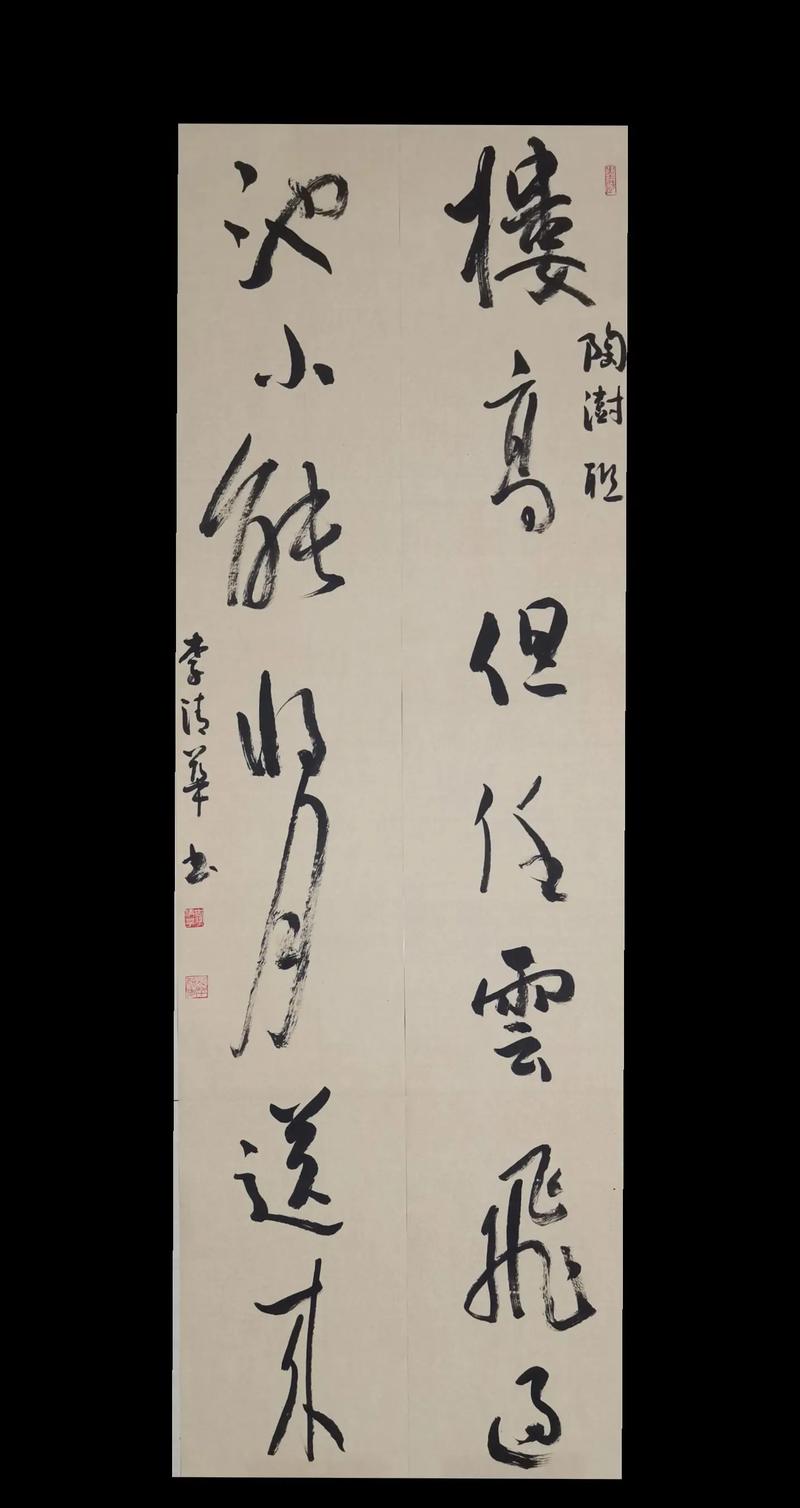 陶澍聯
樓高但任雲飛過
池小能將月送來
李清華書